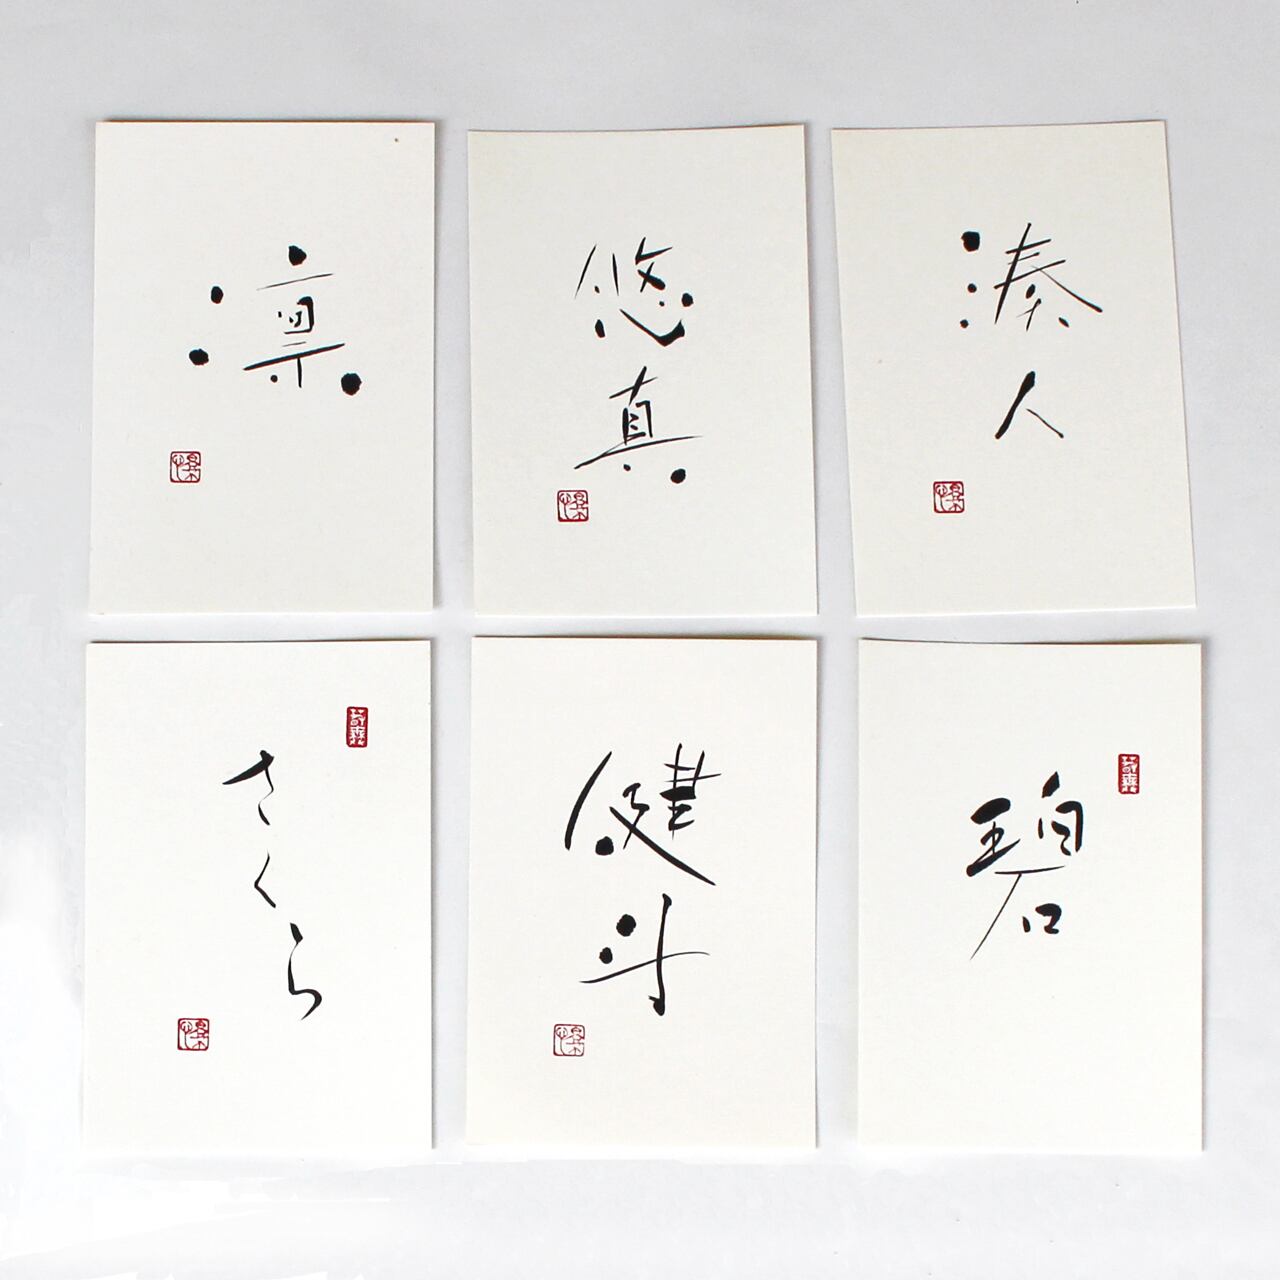 凛
悠真
湊人
さくら
健斗
碧